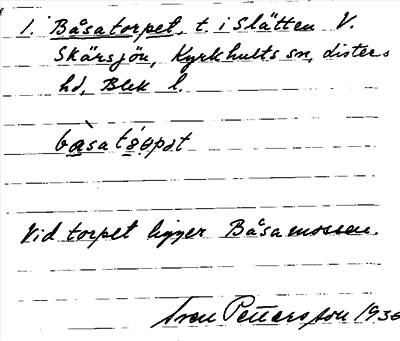 1. Båsatorpet, t. i Slätten V.
Skärsjön, Kyrkhults sn, Listers
hd, Blek l.
Vid torpet ligger Båsamossen.
Sven Pettersson 1936